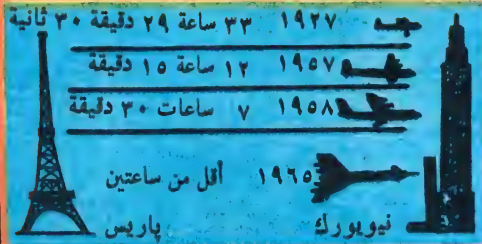 ١٩٢٧ ٣٣ ساعة ٢٩ دقيقة ٣٠ ثانية
١٩٥٧ ١٢ ساعة ١٥ دقيقة
١٩٥٨ ٧ ساعات ٣٠ دقيقة
١٩٦٥ أقل من ساعتين
نيويورك پاريس